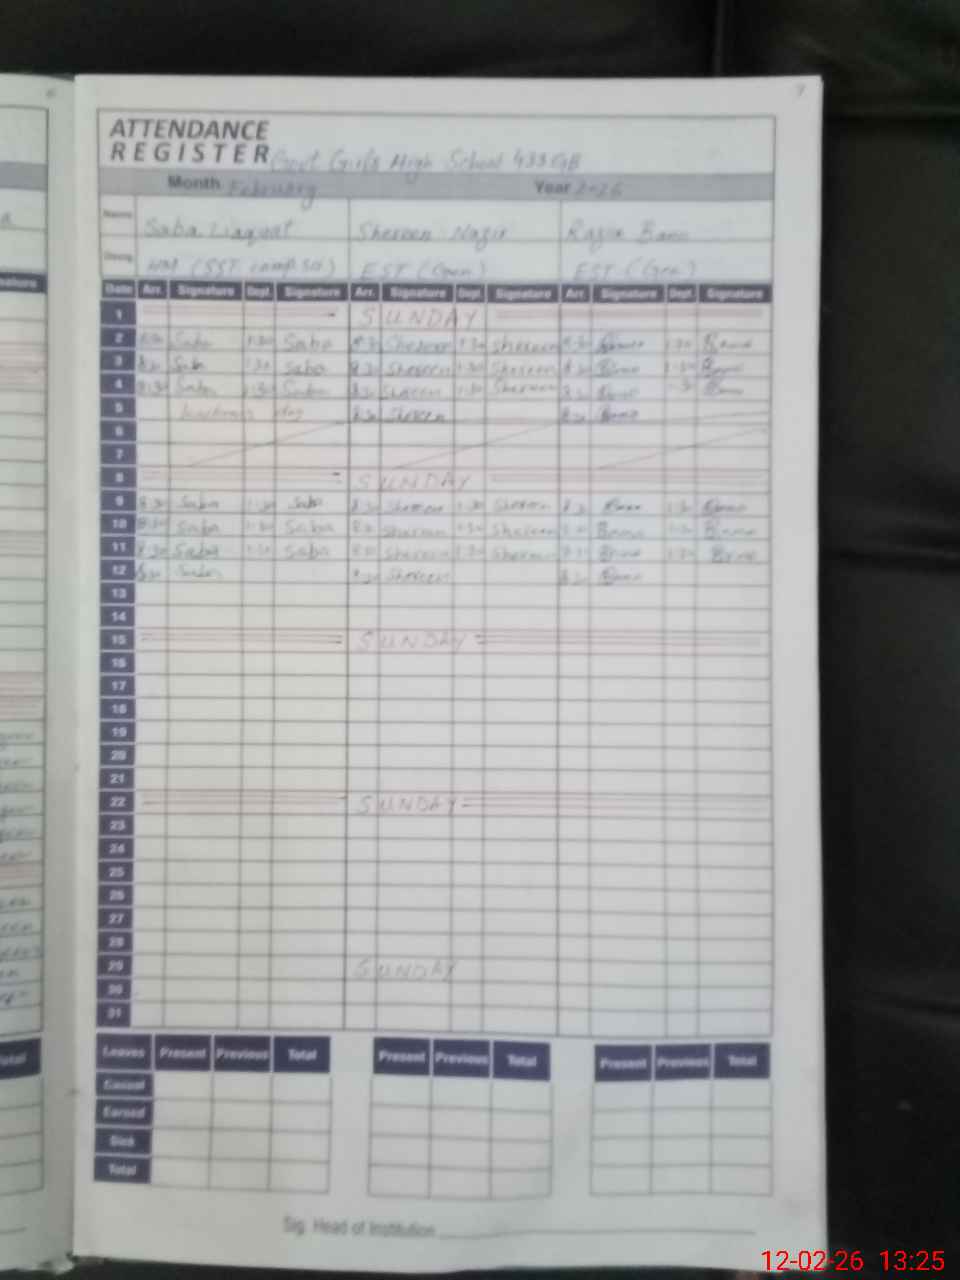 ATTENDANCE
REGISTER Govt Girls High School 433 GB
Month February Year 2026
Name Saba Liaquat Shereen Nazir Razia Bano
Desig. HM (SST comp sci) EST (Gen) EST (Gen)
Date Arr. Signature Dept. Signature Arr. Signature Dept. Signature Arr. Signature Dept. Signature
1 SUNDAY
2 8:30 Saba 1:30 Saba 8:30 Shereen 1:30 Shereen 8:30 Bano 1:30 Bano
3 8:30 Saba 1:30 Saba 8:30 Shereen 1:30 Shereen 8:30 Bano 1:30 Bano
4 8:30 Saba 1:30 Saba 8:30 Shereen 1:30 Shereen 8:30 Bano 1:30 Bano
5 8:30 Shereen 8:30 Bano
6
7
8 SUNDAY
9 8:30 Saba 1:30 Saba 8:30 Shereen 1:30 Shereen 8:30 Bano 1:30 Bano
10 8:30 Saba 1:30 Saba 8:30 Shereen 1:30 Shereen 8:30 Bano 1:30 Bano
11 8:30 Saba 1:30 Saba 8:30 Shereen 1:30 Shereen 8:30 Bano 1:30 Bano
12 8:30 Saba 8:30 Shereen 8:30 Bano
13
14
15 SUNDAY
16
17
18
19
20
21
22 SUNDAY
23
24
25
26
27
28
29 SUNDAY
30
31
Leaves Present Previous Total Present Previous Total Present Previous Total
Casual
Earned
Sick
Total
Sig. Head of Institution
12-02-26 13:25